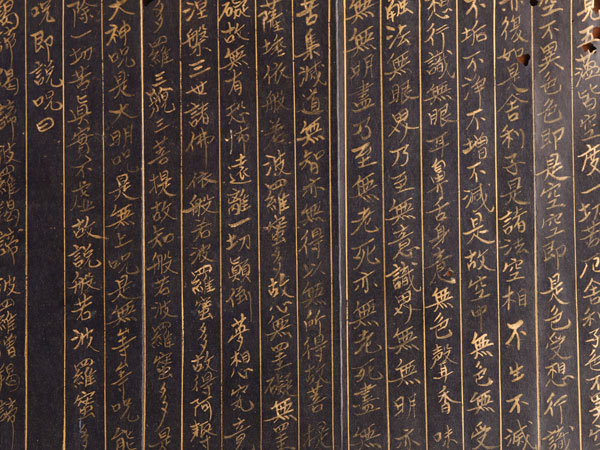 見五蘊皆空度一切苦厄舍利子色不異
空不異色色即是空空即是色受想行識
亦復如是舍利子是諸法空相不生不滅
不垢不淨不增不減是故空中無色無受
想行識無眼耳鼻舌身意無色聲香味
觸法無眼界乃至無意識界無無明亦
無無明盡乃至無老死亦無老死盡無
苦集滅道無智亦無得以無所得故菩提
薩埵依般若波羅蜜多故心無罣礙無罣
礙故無有恐怖遠離一切顛倒夢想究竟
涅槃三世諸佛依般若波羅蜜多故得阿耨
多羅三藐三菩提故知般若波羅蜜多是
大神呪是大明呪是無上呪是無等等呪能
除一切苦真實不虛故說般若波羅蜜多
呪即說呪曰
揭諦揭諦波羅揭諦波羅僧揭諦